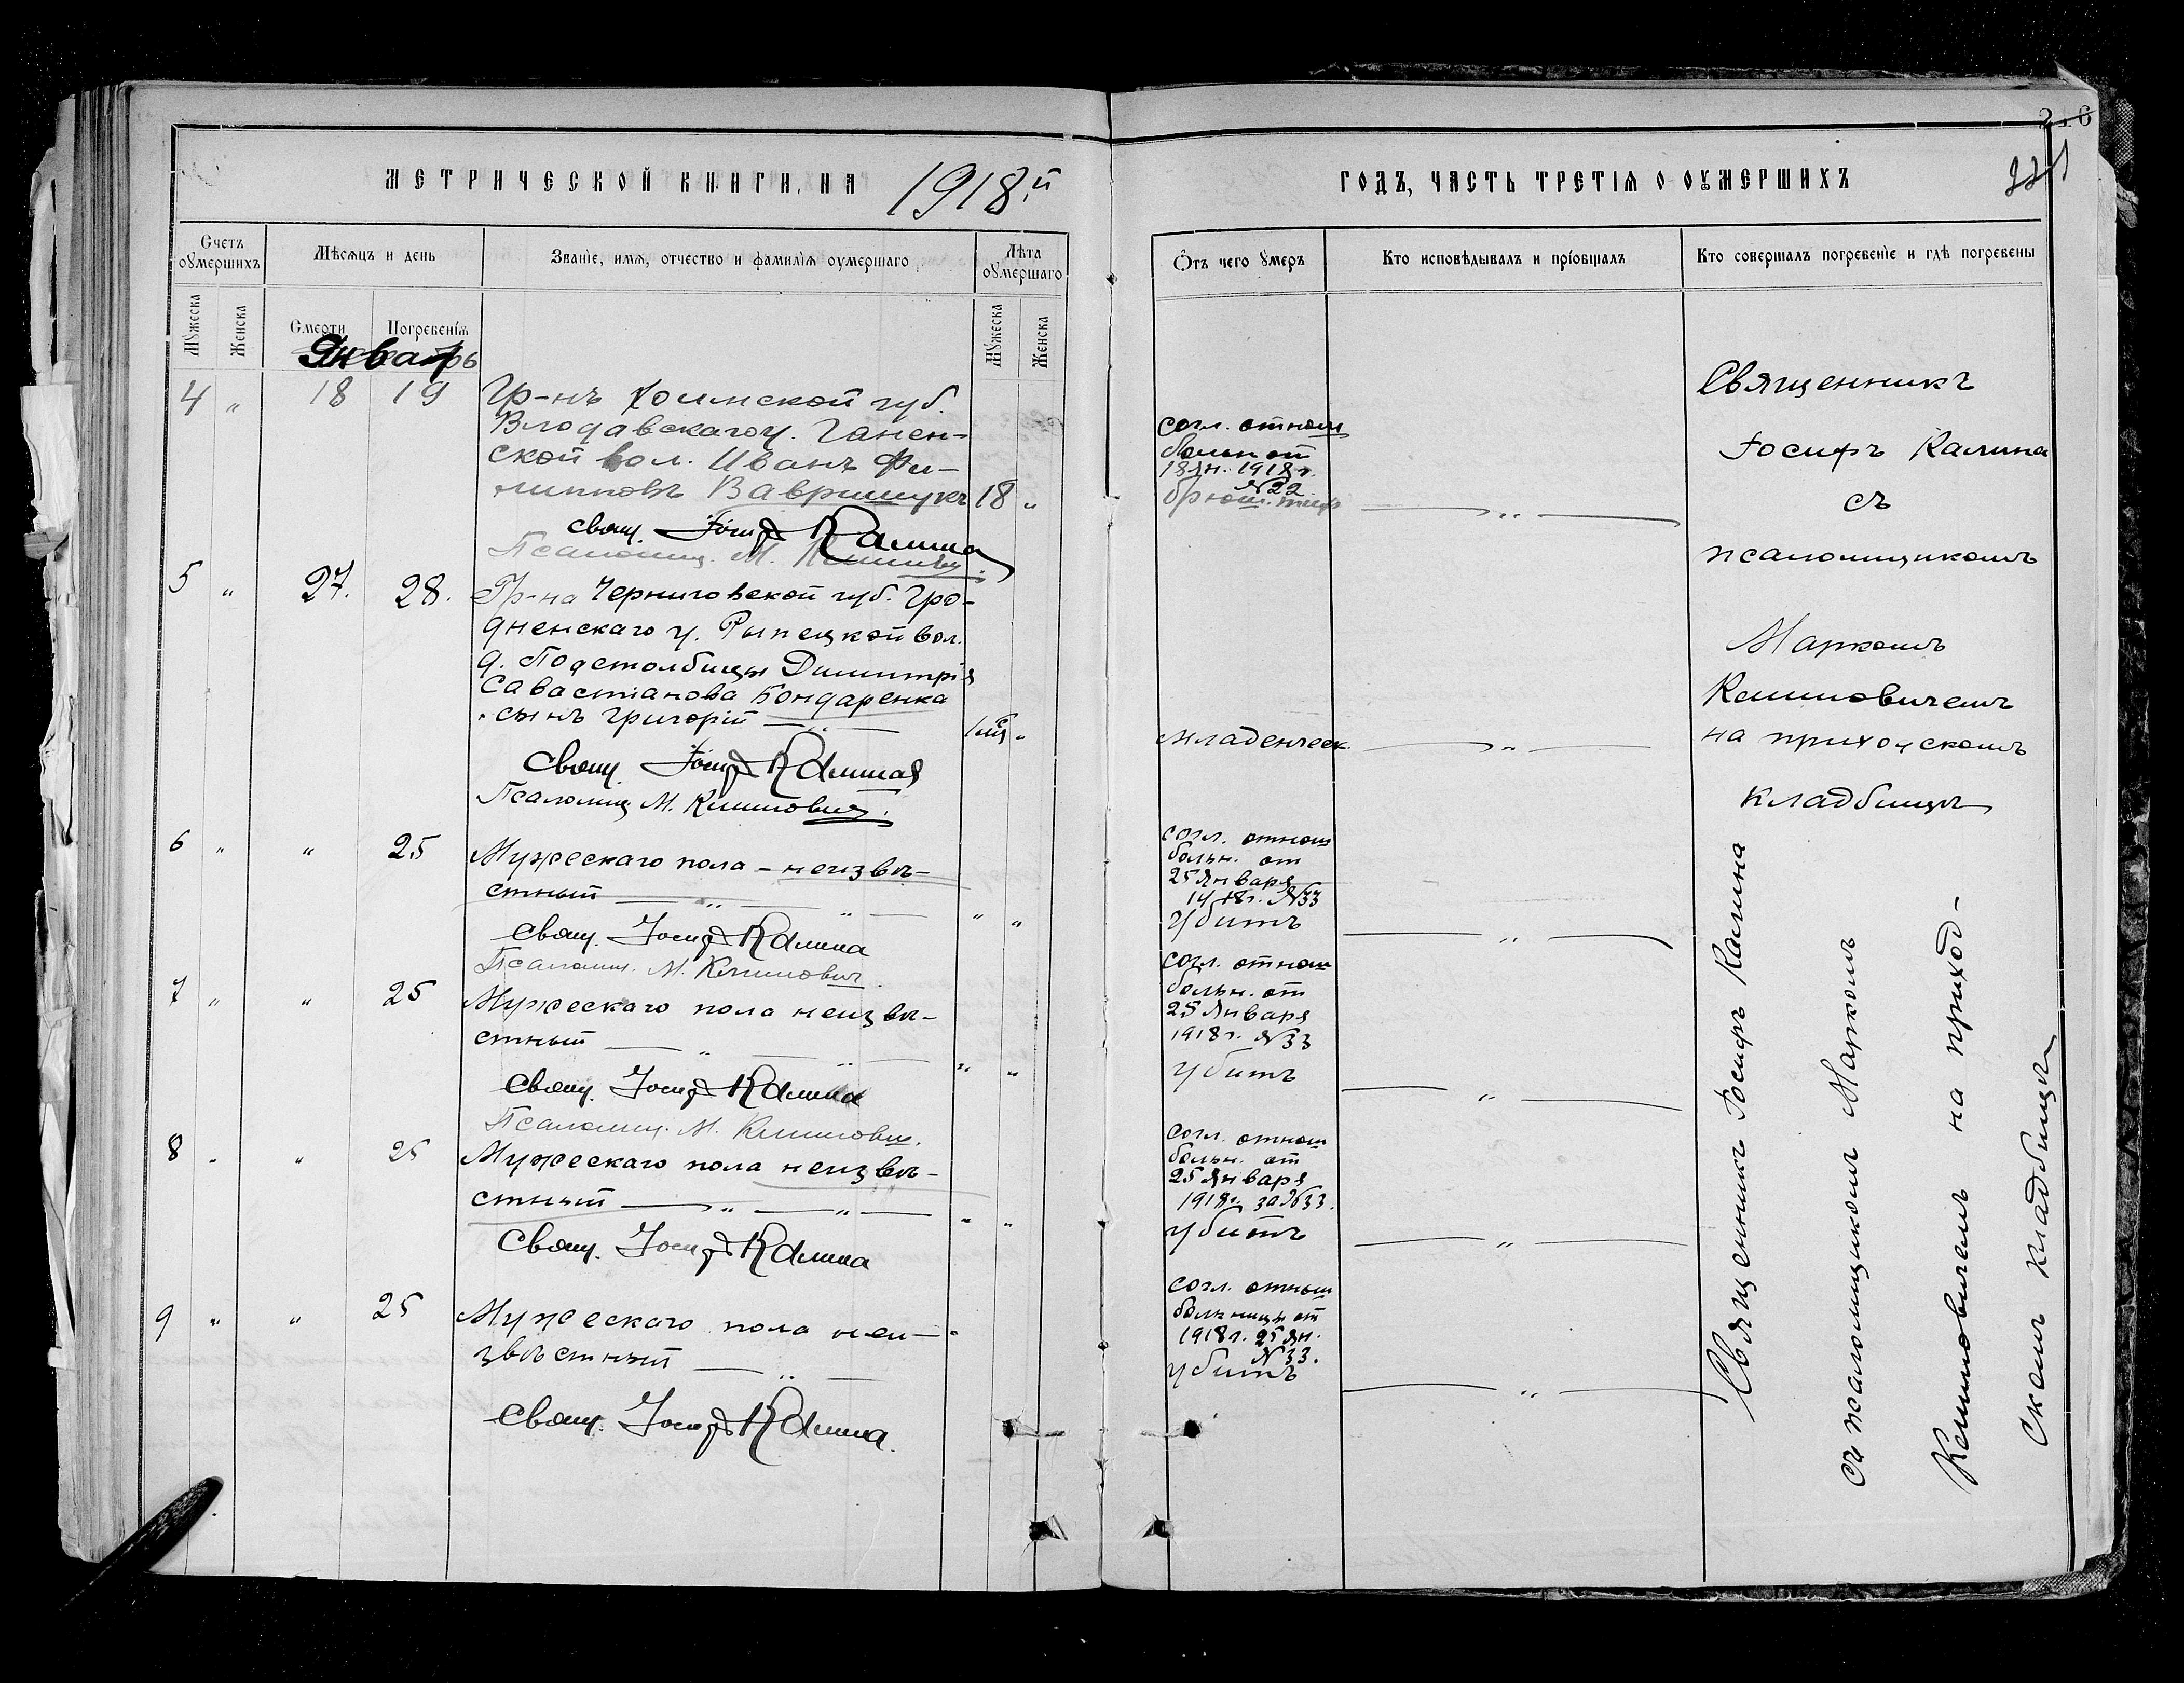 МЕТРИЧЕСКОЙ КНИГИ НА 1918й
Счетъ оумершихъ
Мѣсяцъ и день
Званіе, имя, отчество и фамилія оумершаго
Лѣта оумершаго
Мужеска
Женска
Смерти
Погребенія
Мужеска
Женска
Январь
4 " 18 19 Гр-нъ Холмской губ.
Влодавскаго у. Ганен-
ской вол. Иванъ Фи-
липповъ Вавришукъ 18 "
Свящ. Іосифъ Калина
Псаломщ. М. Климович
5 " 27. 28. Гр-на Черниговской губ. Гро-
дненскаго у. Рыпецкой вол.
д. Подстолбицы Димитрія
Савастіанова Бондаренка
сынъ Григорій — " — "
Свящ. Іосифъ Калина
Псаломщ М. Климович.
6 " " 25 Мужескаго пола - неизвѣ-
стный — " — " — " "
Свящ. Іосифъ Калина
Псаломщ. М. Климович.
7 " " 25 Мужескаго пола неизвѣ-
стный — " — " — " "
Свящ. Іосифъ Калина
Псаломщ. М. Климович.
8 " " 25 Мужескаго пола неизвѣ-
стный — " — " — " "
Свящ. Іосифъ Калина
9 " " 25 Мужескаго пола неи- "
звѣстный — " —
Свящ. Іосифъ Калина.
216
221
ГОДЪ, ЧАСТЬ ТРЕТІЯ О ОУМЕРШИХЪ
Отъ чего умеръ
Кто исповѣдывалъ и пріобщалъ
Кто совершалъ погребеніе и гдѣ погребены
согл. отнош
больн от
18 Ян. 1918 г.
N 22
брюш. тиф — " —
младенческ. — " —
согл. отнош
больн. от
25 Января
1918 г. N33
убитъ — " —
согл. отнош
больн. от
25 Января
1918 г. N33
убитъ — " —
согл. отнош
больн. от
25 Января
1918г. за N33.
убитъ — " —
согл. отнош
больницы от
1918 г. 25 Ян.
N 33.
убитъ — " —
Священникъ
Іосифъ Калина
съ
псаломщикомъ
Маркомъ
Климовичемъ
на приходскомъ
кладбищѣ
Священникъ Іосифъ Калина
съ псаломщикомъ Маркомъ
Климовичемъ на приход-
скомъ кладбищѣ